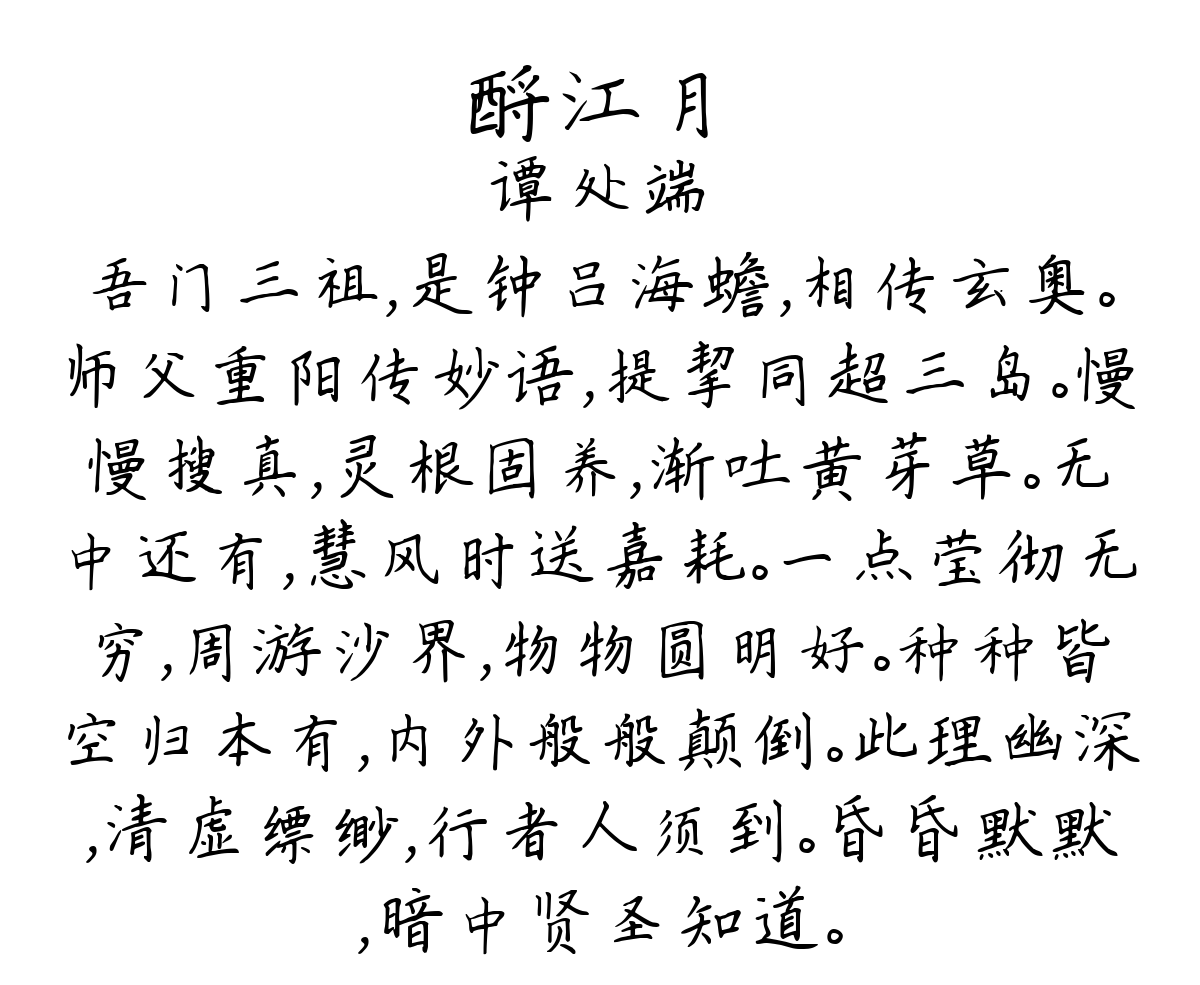 酹江月
谭处端
吾门三祖,是钟吕海蟾,相传玄奥。
师父重阳传妙语,提挈同超三岛。慢
慢搜真,灵根固养,渐吐黄芽草。无
中还有,慧风时送嘉耗。一点莹彻无
穷,周游沙界,物物圆明好。种种皆
空归本有,内外般般颠倒。此理幽深
,清虚缥缈,行者人须到。昏昏默默
,暗中贤圣知道。